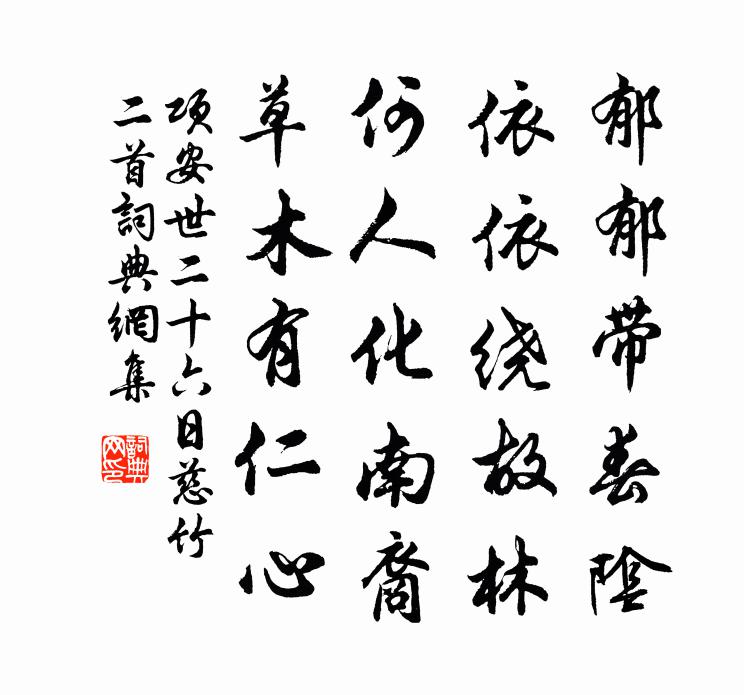 郁郁带春陰
依依绕故林
何人化南裔
草木有仁心
项安世二十六日慈竹
二首詞典網集
詞典網印